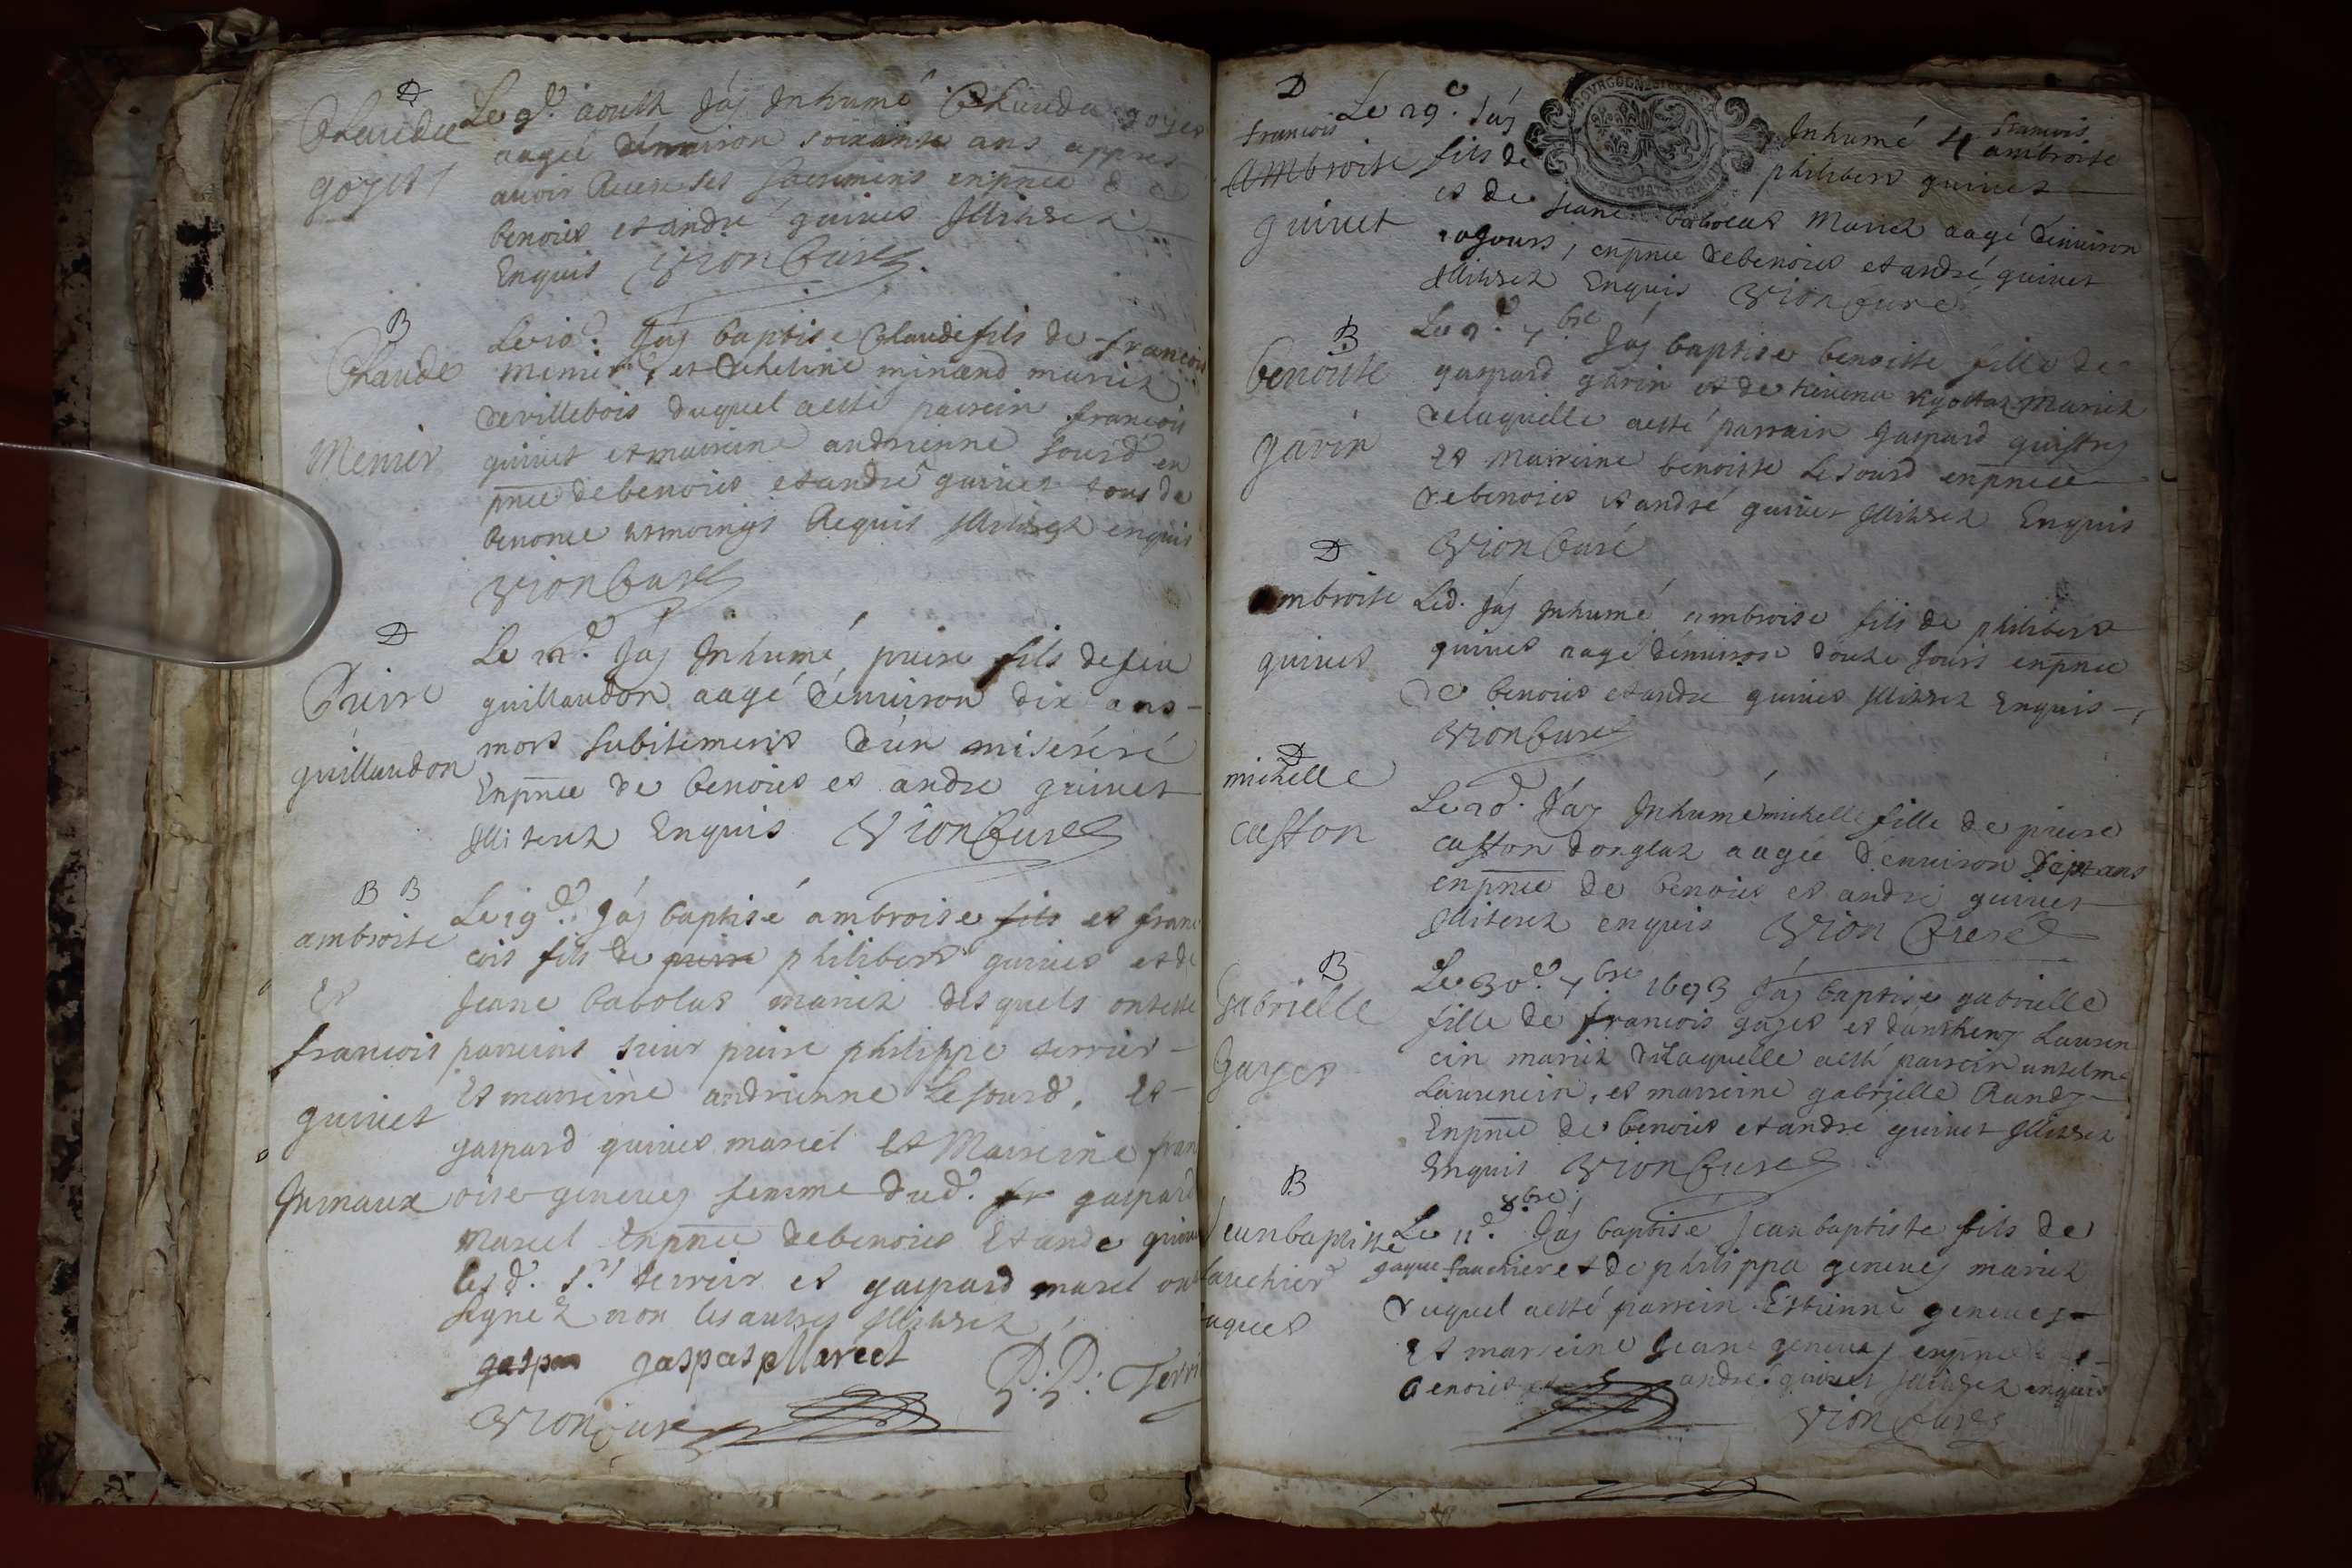 D
Claudie
goyet
Le 9e aoust Jáy Inhumé Claude goyet
aagee d'environ soixante ans appres
avoir Receu ses sacremens enpnce de
benoit et andre guinet Illiterez
Enquis Vion Curé
B
Claude
Menier
Le 10e Jáy baptise Claude fils de francois
menier et minand mariez
de villebois duquel a esté parrein francois
guinet et marreine andrienne sourd en
pnce de benoit et andre guinet tous de
benonce tesmoings Requis Illiterez enquis
Vion Curé
D
Pierre
guillaudon
Le Jáy Inhumé, pierre fils de feu
guillaudon aagé d'environ dix ans
mort subitement d'ún miseréré
Enpnce de benoit et andre guinet
Illiterez Enquis Vion Curé
B B
ambroise
Et
francois
guinet
Jumaux
Le 19e Jáy baptisé ambroise fils et fran
cois fils de pierre philibert guinet et de
Jeane babolat mariez desquels ont esté
parreins sieur pierre philippe terrier
Et marreine andrienne Lesourd, Et
gaspard guinet marcel Et Marreine fran
oise genevey femme dud. fr gaspard
Marcel Enpnce de benoit Et ande guinet
lesd. Sr terreir et gaspard marcel ont
signez non les autres Illiterez
gaspar gaspar Marcel
P: P: Terri
Vion curé
D
francois
ambroise
guinet
Le 29e Jáy Inhumé francois
ambroise
fils de philibert guinet
et de Jeane babolat Mariez aagé d'environ
10 jours, enpnce de benoit et andré guinet
Illiterez Enquis Vion Curé
B
benoiste
garin
Le 9e 7bre Jáy baptise benoiste fille de
gaspard garin et de Mariez
de laquelle a esté parrain gaspard
et Marreine benoiste Lesourd enpnce
de benoit et andré guinet Illiterez Enquis
Vion Curé
D
ambroise
guinet
Led. Jáy Inhumé ambroise fils de philibert
guinet aagé d'environ douze Jours enpnce
de benoit et andre guinet Illiterez Enquis
Vion Curé
D
michelle
caston
Le 20e Jáy Inhumé michelle fille de pierre
caston aagée d'environ sept ans
enpnce de benoit et andré guinet
Illiterez enquis Vion Curé
B
Gabrielle
Gayet
Le 30e 7bre 1693 Jáy baptise gabrielle
fille de francois gayet et d'antheny Lauren
cin mariez de laquelle a esté parrein antelme
Laurencin, et marreine gabrielle Randy
Enpnce de benoit et andre guinet Illiterez
Enquis Vion Curé
B
Jeanbaptiste
fauchier
Jaques
8bre
Le 11e Jáy baptise Jean baptiste fils de
Jaque fauchier et de philippa genevey mariez
duquel a esté parrein Estienne genevey
Et marreine Jeane genevey enpnce de
benoit et andré guinet Illiterez enquis
Vion Curé